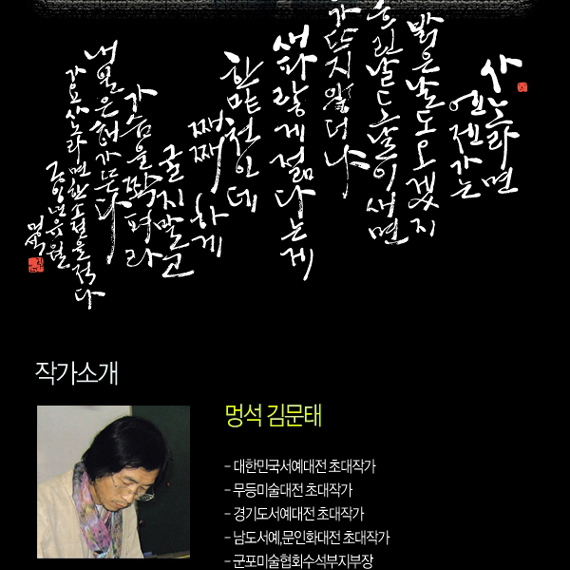 사노라면
언젠가는
밝은날도오겠지
흐린날도날이새면
가뜨지않더냐
새파랗게젊다는게
한밑천인데
쩨쩨
하게
굴지말고
가슴을쫙펴라
내일은해가뜬다
가요사노라면한소절을적다
유월
멍석
작가소개
멍석 김문태
- 대한민국서예대전 초대작가
- 무등미술대전 초대작가
- 경기도서예대전 초대작가
- 남도서예,문인화대전 초대작가
- 군포미술협회수석부지부장